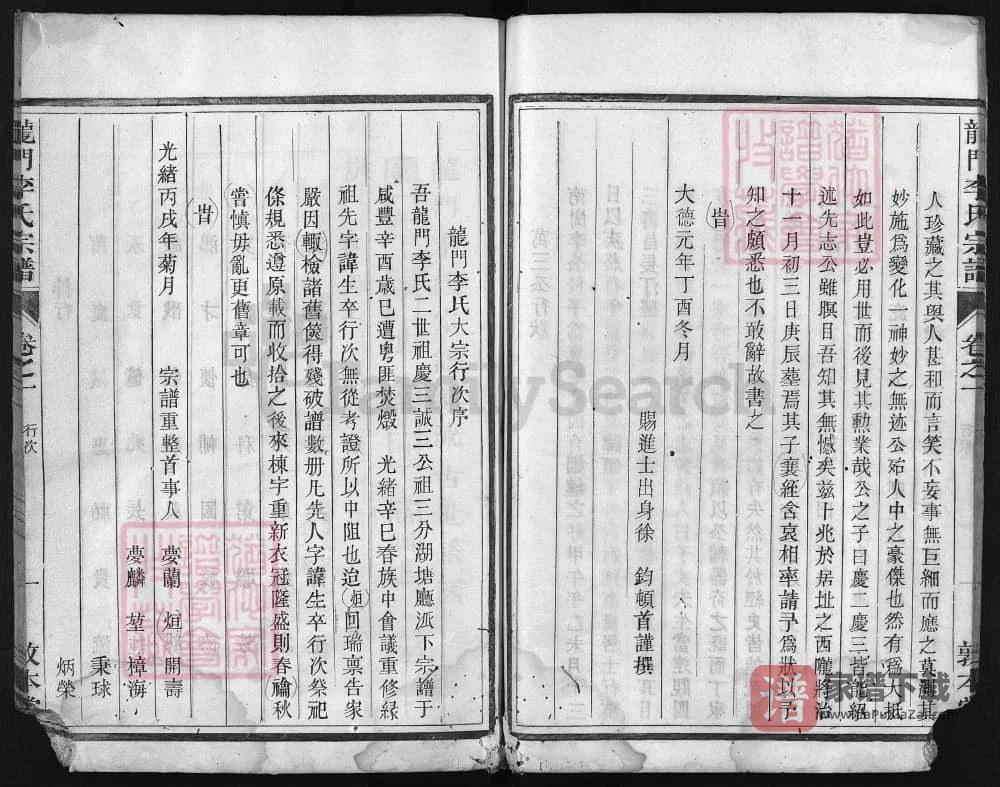 龍門李氏宗譜
卷之一
行次
敦本堂
人珍藏之其與人甚和而言笑不妄事無巨細而應之莫難其
妙施爲變化一神妙之無迹公殆人中之豪傑也然有爲大抵
如此豈必用世而後見其勲業哉公之子曰慶二慶三皆能紹
述先志公雖瞑目吾知其無憾矣兹卜兆於居址之西隴將治
十一月初三日庚辰塟焉其子衰絰含哀相率請予爲狀以予
知之頗悉也不敢辭故書之
旹
大德元年丁酉冬月
賜進士出身徐　鈞頓首謹撰
龍門李氏大宗行次序
吾龍門李氏二世祖慶三誠三公祖三分湖塘廳派下宗譜于
咸豐辛酉歲已遭粵匪焚燬　光緒辛巳春族中會議重修緣
祖先字諱生卒行次無從考證所以中阻也迨烜回瑞稟告家
嚴因輙檢諸舊篋得殘破譜數册凡先人字諱生卒行次祭祀
條規悉遵原載而收拾之後來棟宇重新衣冠隆盛則春禴秋
嘗慎毋亂更舊章可也
旹
光緒丙戌年菊月　宗譜重整首事人　夢蘭　烜　開壽
夢麟　堃　樟海
秉球
炳榮
龍門李氏宗譜
卷之一
行次
一
敦本堂
FamilySearch
譜
家譜下载